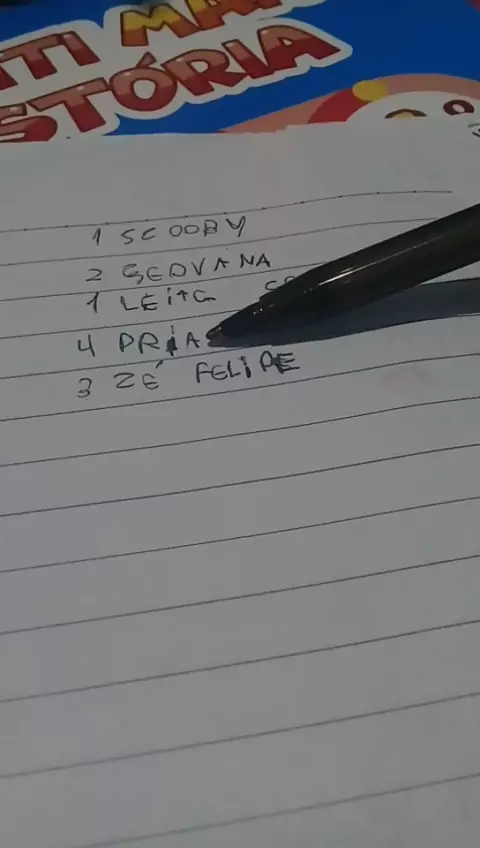 STÓRIA
1 SCOOBY
2 GEOVANA
1 LEITE
4 PRIA
3 ZÉ FELIPE